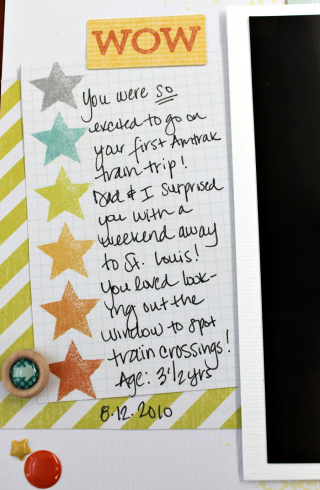 WOW
You were so
excited to go on
your first Amtrak
train trip!
Dad & I surprised
you with a
weekend away
to St. Louis!
You loved look-
ing out the
window to spot
train crossings!
Age: 3 1/2 yrs
8.12.2010